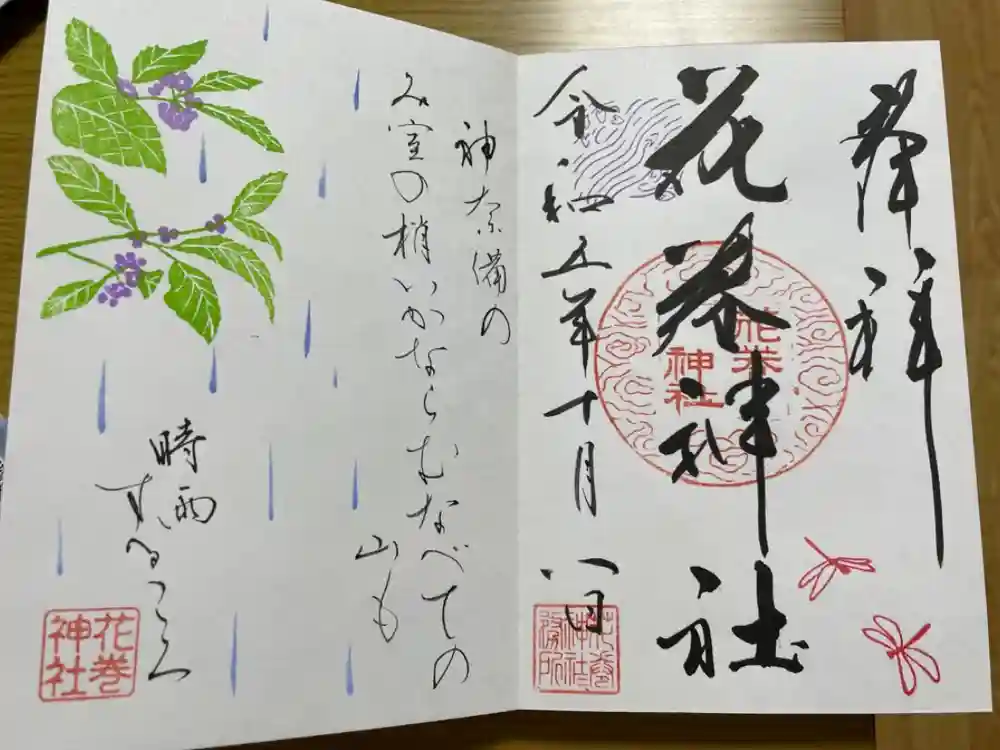 奉拝
花巻神社
花巻
神社
令和五年十月八日
花巻
神社
務所
神奈備の
み室の梢いかならむなべての
山も
時雨
するころ
花巻
神社